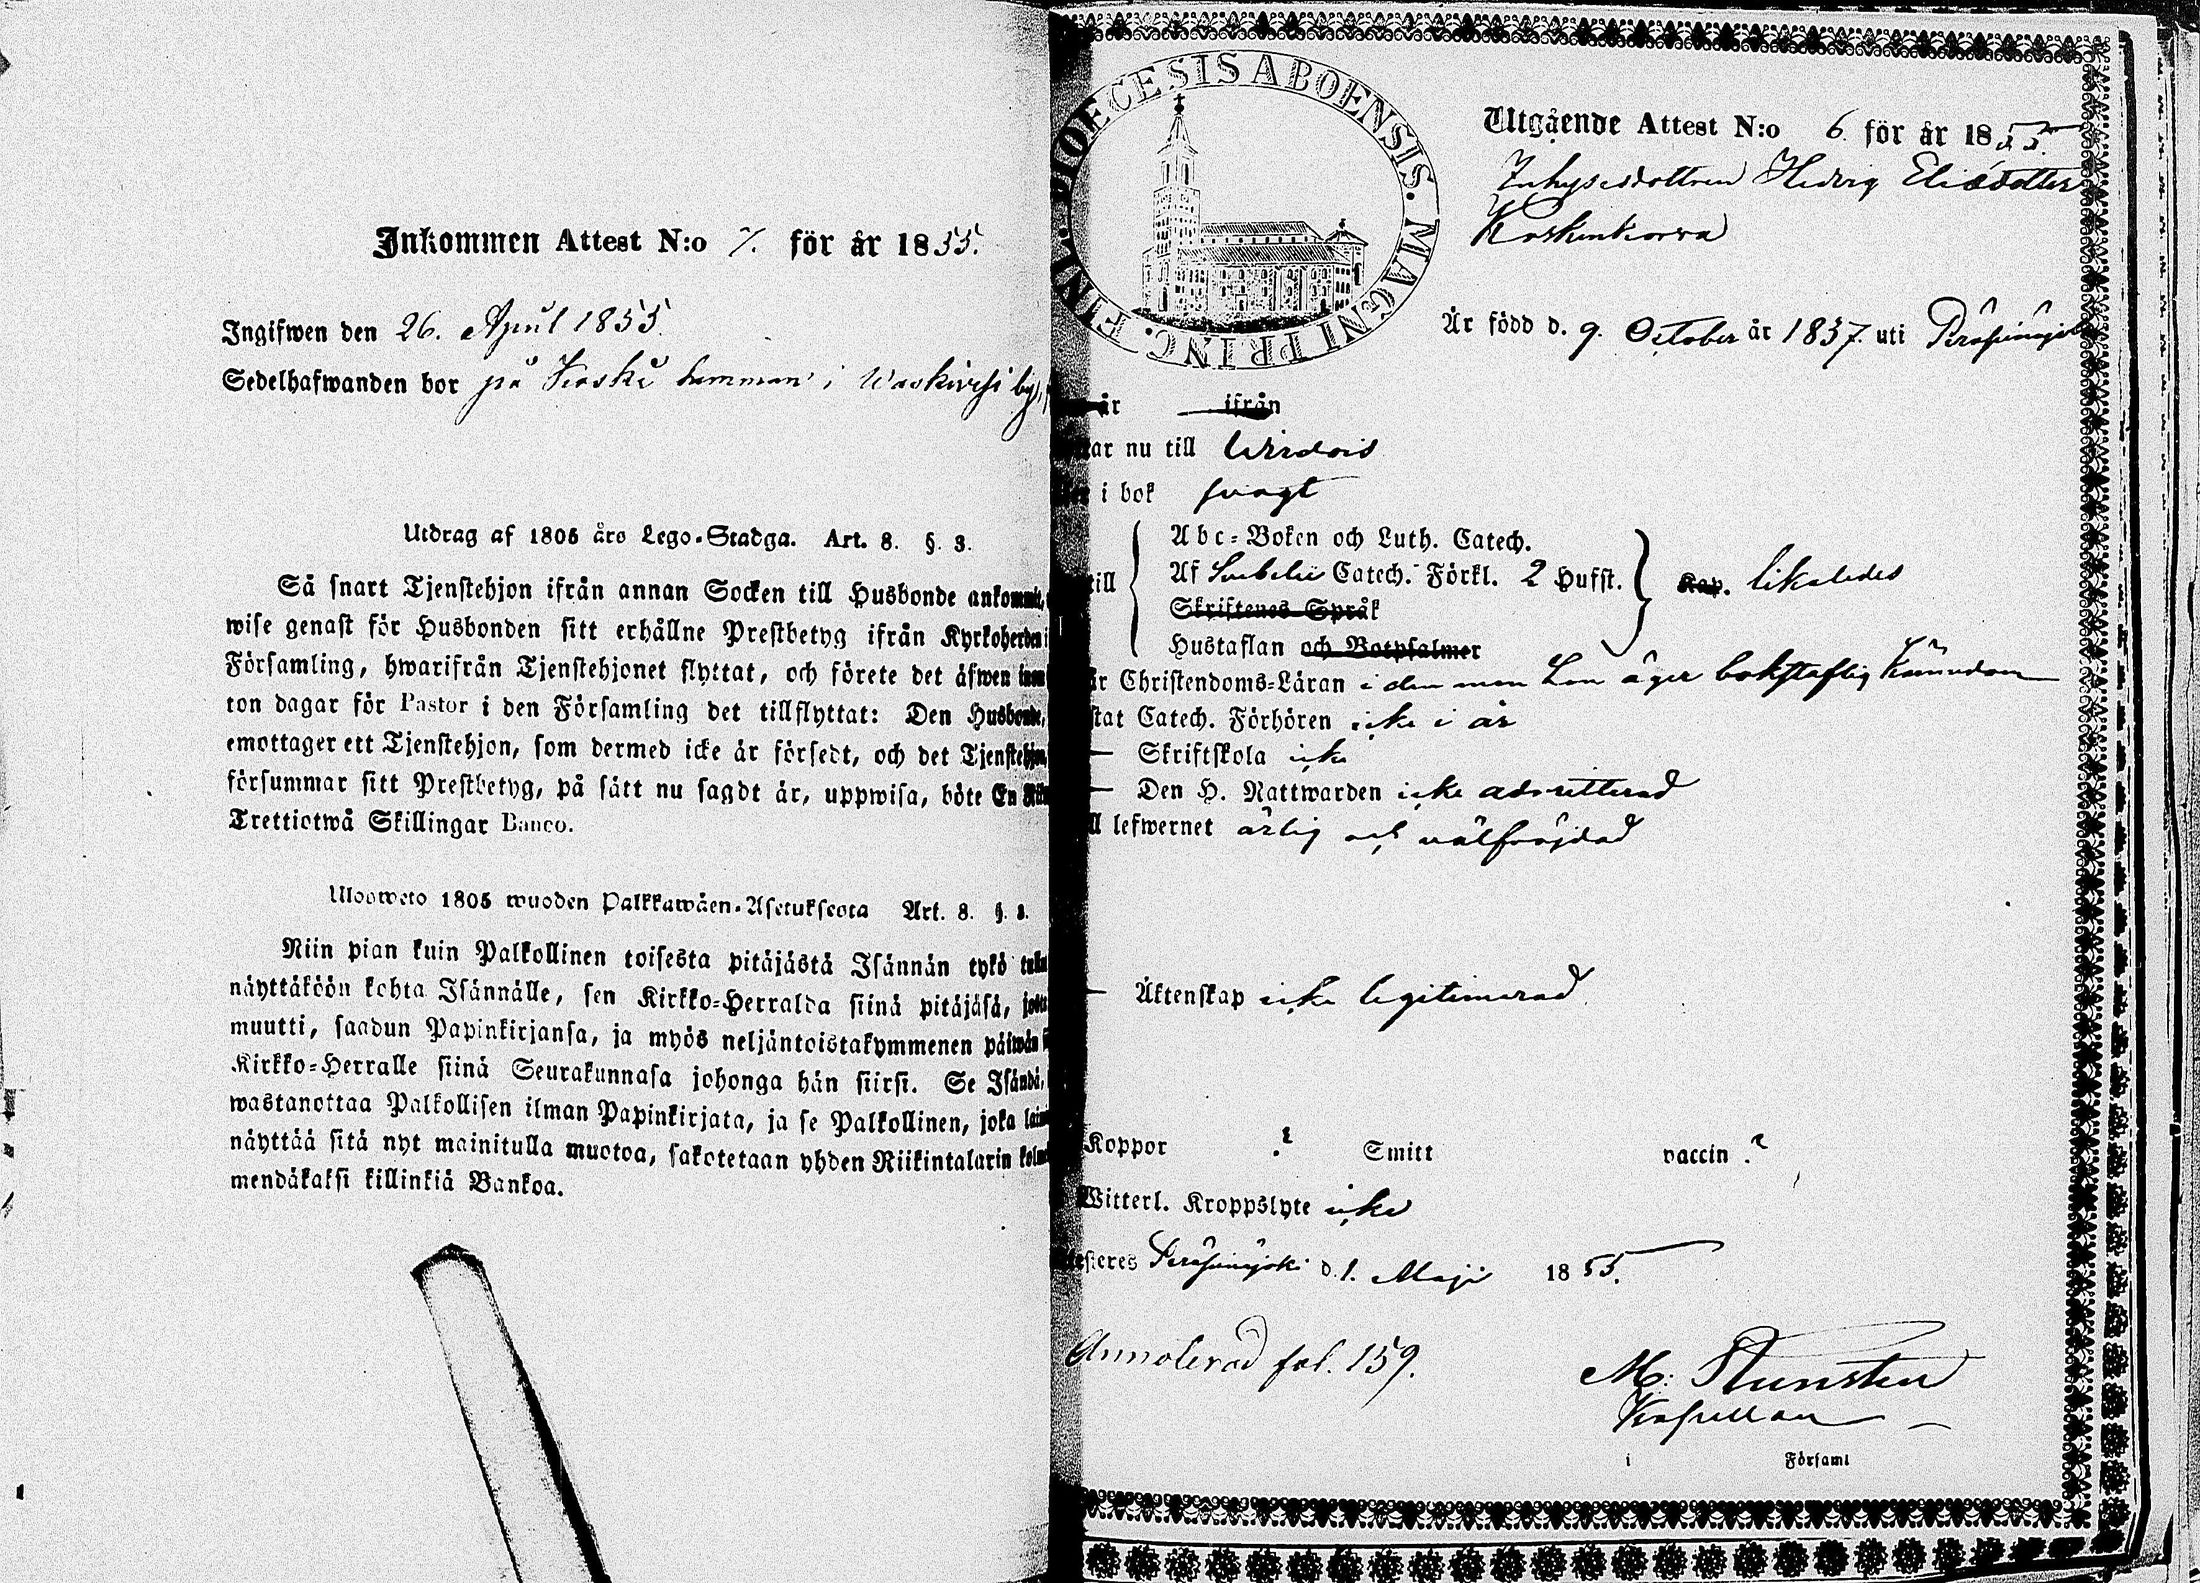 Inkommen Attest N:o 7. för år 1855.
Ingifwen den 26. April 1855.
Sedelhafwanden bor på Koski hemman i Waskivesi by,
Utdrag af 1805 års Lego-Stadga. Art. 8. §. 3.
Så snart Tjenstehjon ifrån annan Socken till Husbonde
wise genast för Husbonden sitt erhållne Prestbetyg ifrån Kyrkoherden i
Församling, hwarifrån Tjenstehjonet flyttat, och förete det äfwen
ton dagar för Pastor i den Församling det tillflyttat: Den Husbonde,
emottager ett Tjenstehjon, som dermed icke är försedt, och det Tjenstehjon,
försummar sitt Prestbetyg, på sätt nu sagdt är, uppwisa, böte En
Trettiotwå Skillingar Banco.
Ulosweto 1805 wuoden Palkkawäen-Asetuksesta Art. 8. §. 3.
Niin pian kuin Palkollinen toisesta pitäjästä Isännän tykö
näyttäköön kohta Isännälle, sen Kirkko-Herralda siinä pitäjäsä,
muutti, saadun Papinkirjansa, ja myös neljäntoistakymmenen päiwän
Kirkko-Herralle siinä Seurakunnasa johonga hän siirsi. Se Isändä,
wastanottaa Palkollisen ilman Papinkirjata, ja se Palkollinen, joka
näyttää sitä nyt mainitulla muotoa, sakotetaan yhden Riikintalarin
mendäkaksi killinkiä Bankoa.
DIOECESIS ABOENSIS. MAGNI PRINC. FINL.
Utgående Attest N:o 6. för år 1855.
Inhysesdottren Hedvig Eliædotter
Koskenkorva
Är född d. 9. October år 1837. uti Peräseinäjoki
år ifrån
ar nu till Wirdois
i bok svagt
Abc-Boken och Luth. Catech.
till Af Svebelii Catech. Förkl. 2 Hufst. Kap. likaledes
Skriftenes Språk
Hustaflan och Botpsalmer
r Christendoms-Läran i den mon hon äger bokstaflig kännedom
stat Catech. Förhören icke i år
— Skriftskola icke
— Den H. Nattwarden icke admitterad
ll lefwernet ärlig och välfräjdad
— Äktenskap icke legitimerad.
Koppor ? Smitt vaccin ?
Witterl. Kroppslyte icke
esteres Peräseinäjoki d. 1. Maji 1855.
Annoterad fol. 159.
Kapellan
i Församl